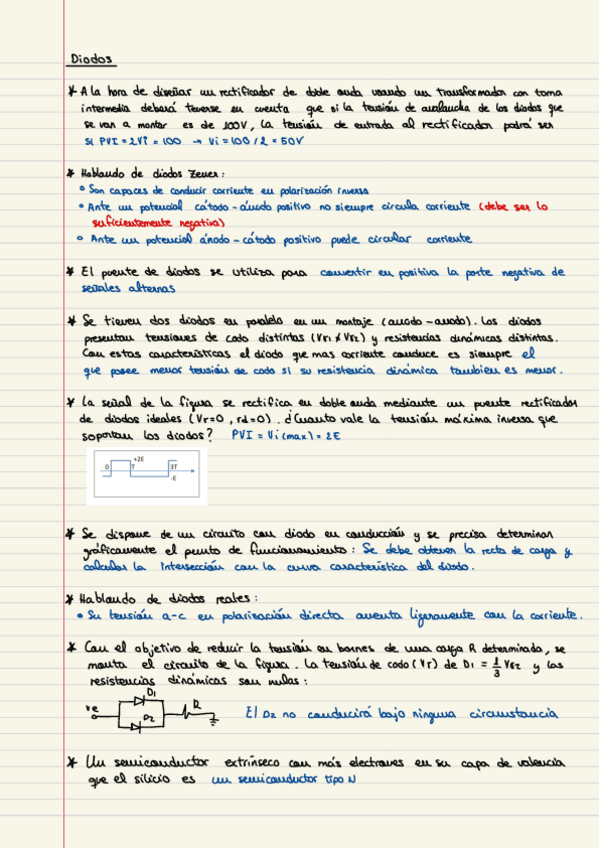 Diodos
* A la hora de diseñar un rectificador de doble onda usando un transformador con toma
intermedia deberá tenerse en cuenta que si la tensión de avalancha de los diodos que
se van a montar es de 100V, la tensión de entrada al rectificador podrá ser
si PVI = 2Vi = 100 → Vi = 100 / 2 = 50V
* Hablando de diodos Zener:
• Son capaces de conducir corriente en polarización inversa
• Ante un potencial cátodo - ánodo positivo no siempre circula corriente (debe ser lo
suficientemente negativa)
• Ante un potencial ánodo - cátodo positivo puede circular corriente
* El puente de diodos se utiliza para convertir en positiva la parte negativa de
señales alternas
* Se tienen dos diodos en paralelo en un montaje (ánodo - ánodo). Los diodos
presentan tensiones de codo distintas (Vr1 ≠ Vr2) y resistencias dinámicas distintas.
Con estas características el diodo que mas corriente conduce es siempre el
que posee menor tensión de codo si su resistencia dinámica tambien es menor.
* La señal de la figura se rectifica en doble onda mediante un puente rectificador
de diodos ideales (Vr=0, rd=0). ¿Cuanto vale la tensión máxima inversa que
soportan los diodos? PVI = Vi(max) = 2E
+2E
0 T 3T
-E
* Se dispone de un circuito con diodo en conducción y se precisa determinar
gráficamente el punto de funcionamiento: Se debe obtener la recta de carga y
calcular la intersección con la curva característica del diodo.
* Hablando de diodos reales:
• Su tensión a-c en polarización directa aumenta ligeramente con la corriente.
* Con el objetivo de reducir la tensión en bornes de una carga R determinada, se
monta el circuito de la figura. La tensión de codo (Vr) de D1 = 1/3 Vr2 y las
resistencias dinámicas son nulas:
D1
Ve D2 R
El D2 no conducirá bajo ninguna circunstancia
* Un semiconductor extrínseco con más electrones en su capa de valencia
que el silicio es un semiconductor tipo N